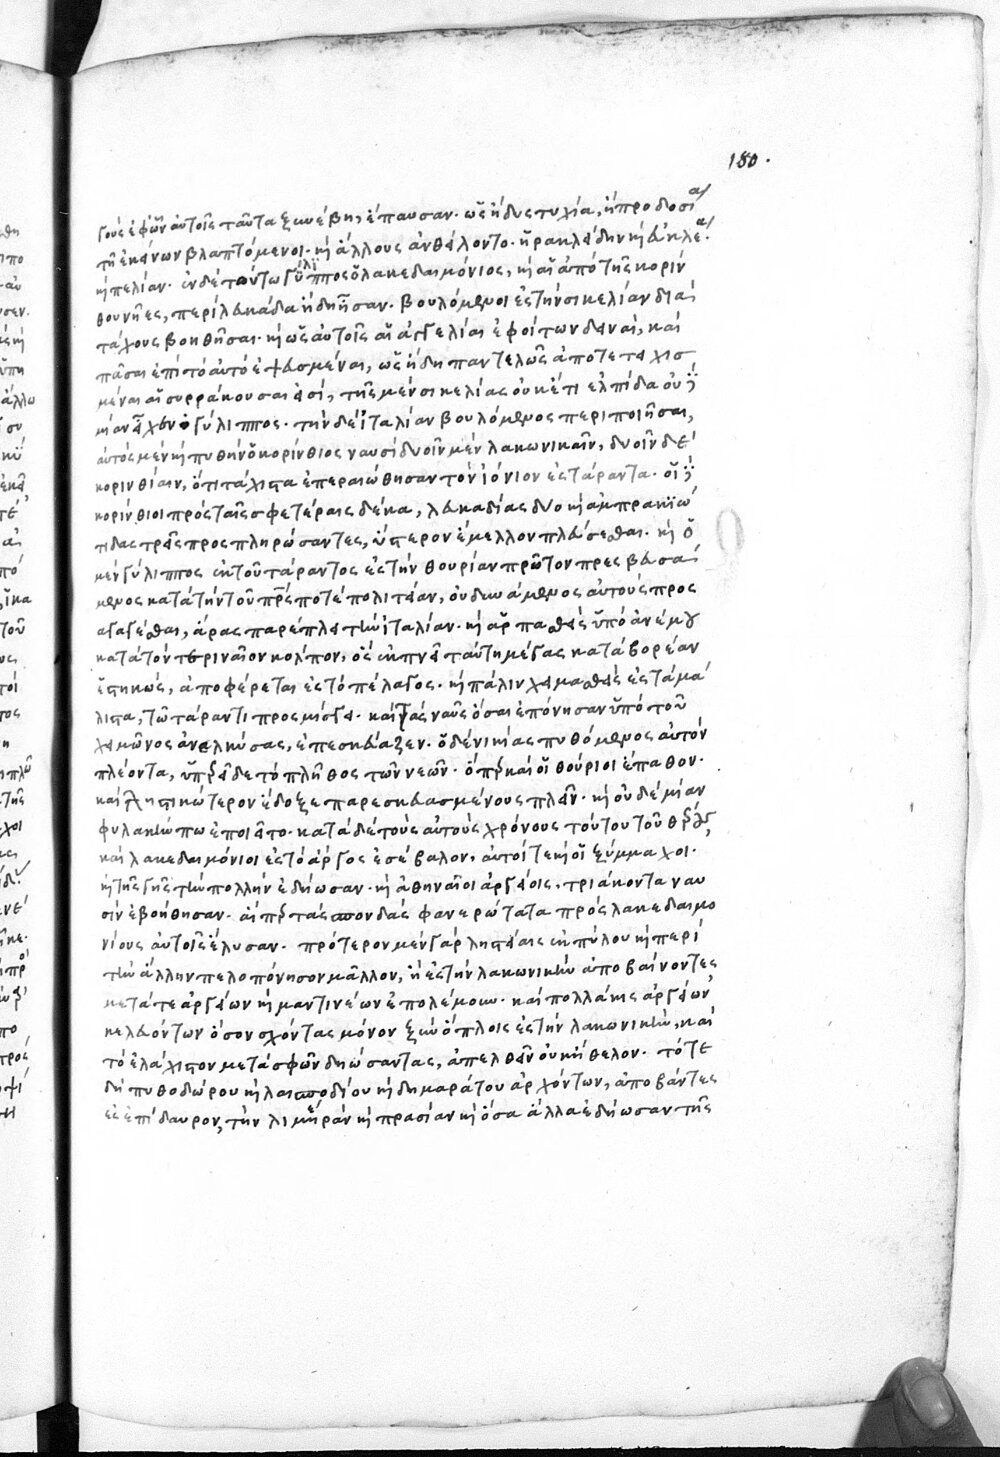 180.
γοὺς ἐφ' ὧν αὐτοῖς ταῦτα ξυνέβη, ἔπαυσαν. ὡς ἢ δυστυχία, ἢ προδοσία
τῇ ἐκείνων βλαπτόμενοι. καὶ ἄλλους ἀνθείλοντο. ἡρακλείδην καὶ εὐκλέα.
καὶ τελίαν. ἐν δὲ τούτῳ γύλιππος ὁ λακεδαιμόνιος, καὶ αἱ ἀπὸ τῆς κορίν
θου νῆες, περὶ λευκάδα ἤδη ἦσαν. βουλόμενοι ἐς τὴν σικελίαν διὰ
τάχους βοηθῆσαι. καὶ ὡς αὐτοῖς αἱ ἀγγελίαι ἐφοίτων δειναὶ, καὶ
πᾶσαι ἐπὶ τὸ αὐτὸ ἐψευσμέναι, ὡς ἤδη παντελῶς ἀποτετειχισ
μέναι αἱ συρράκουσαι εἰσί, τῆς μὲν σικελίας οὐκέτι ἐλπίδα οὐδε
μίαν εἶχεν ὁ γύλιππος. τὴν δὲ ἰταλίαν βουλόμενος περιποιῆσαι,
αὐτὸς μὲν καὶ πυθὴν ὁ κορίνθιος ναυσὶ δυοῖν μὲν λακωνικαῖν, δυοῖν δὲ
κορινθίαιν, ὅτι τάχιστα ἐπεραιώθησαν τὸν ἰόνιον ἐς τάραντα. οἱ δὲ
κορίνθιοι πρὸς ταῖς σφετέραις δέκα, λευκαδίας δύο καὶ ἀμπρακιώ
τιδας τρεῖς προσπληρώσαντες, ὕστερον ἔμελλον πλεύσεσθαι. καὶ ὁ
μὲν γύλιππος ἐκ τοῦ τάραντος ἐς τὴν θουρίαν πρῶτον πρεσβευσά
μενος κατὰ τὴν τοῦ πατρός ποτε πολιτείαν, οὐ δυνάμενος αὐτοὺς προς
αγαγέσθαι, ἄρας παρέπλει τὴν ἰταλίαν. καὶ ἁρπασθεὶς ὑπὸ ἀνέμου
κατὰ τὸν τεριναῖον κόλπον, ὃς ἐκπνεῖ ταύτῃ μέγας κατὰ βορέαν
ἑστηκώς, ἀποφέρεται ἐς τὸ πέλαγος. καὶ πάλιν χειμασθεὶς ἐς τὰ μά
λιστα, τῷ τάραντι προσμίσγει. καὶ τὰς ναῦς ὅσαι ἐπόνησαν ὑπὸ τοῦ
χειμῶνος ἀνελκύσας, ἐπεσκεύαζεν. ὁ δὲ νικίας πυθόμενος αὐτὸν
πλέοντα, ὑπερεῖδε τὸ πλῆθος τῶν νεῶν. ὅπερ καὶ οἱ θούριοι ἔπαθον.
καὶ λῃστικώτερον ἔδοξε παρεσκευασμένους πλεῖν. καὶ οὐδεμίαν
φυλακήν πω ἐποιεῖτο. κατὰ δὲ τοὺς αὐτοὺς χρόνους τούτου τοῦ θέρους,
καὶ λακεδαιμόνιοι ἐς τὸ ἄργος ἐσέβαλον, αὐτοί τε καὶ οἱ ξύμμαχοι.
καὶ τῆς γῆς τὴν πολλὴν ἐδῄωσαν. καὶ ἀθηναῖοι ἀργείοις, τριάκοντα ναυ
σὶν ἐβοήθησαν. αἵπερ τὰς σπονδὰς φανερώτατα πρὸς λακεδαιμο
νίους αὐτοῖς ἔλυσαν. πρότερον μὲν γὰρ λῃστείαις ἐκ πύλου καὶ περὶ
τὴν ἄλλην πελοπόνησον μᾶλλον, ἢ ἐς τὴν λακωνικὴν ἀποβαίνοντες
μετά τε ἀργείων καὶ μαντινέων ἐπολέμουν. καὶ πολλάκις ἀργείων
κελευόντων ὅσον σχόντας μόνον ξὺν ὅπλοις ἐς τὴν λακωνικὴν, καὶ
τὸ ἐλάχιστον μετὰ σφῶν δῃώσαντας, ἀπελθεῖν οὐκ ἤθελον. τότε
δὴ πυθοδώρου καὶ λαισποδίου καὶ δημαράτου ἀρχόντων, ἀποβάντες
ἐς ἐπίδαυρον, τὴν λιμηρὰν καὶ πρασίαν καὶ ὅσα ἄλλα ἐδῄωσαν τῆς